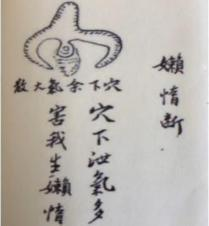 懶惰斷
穴下余氣大散
穴下泄氣多
害我生懶惰